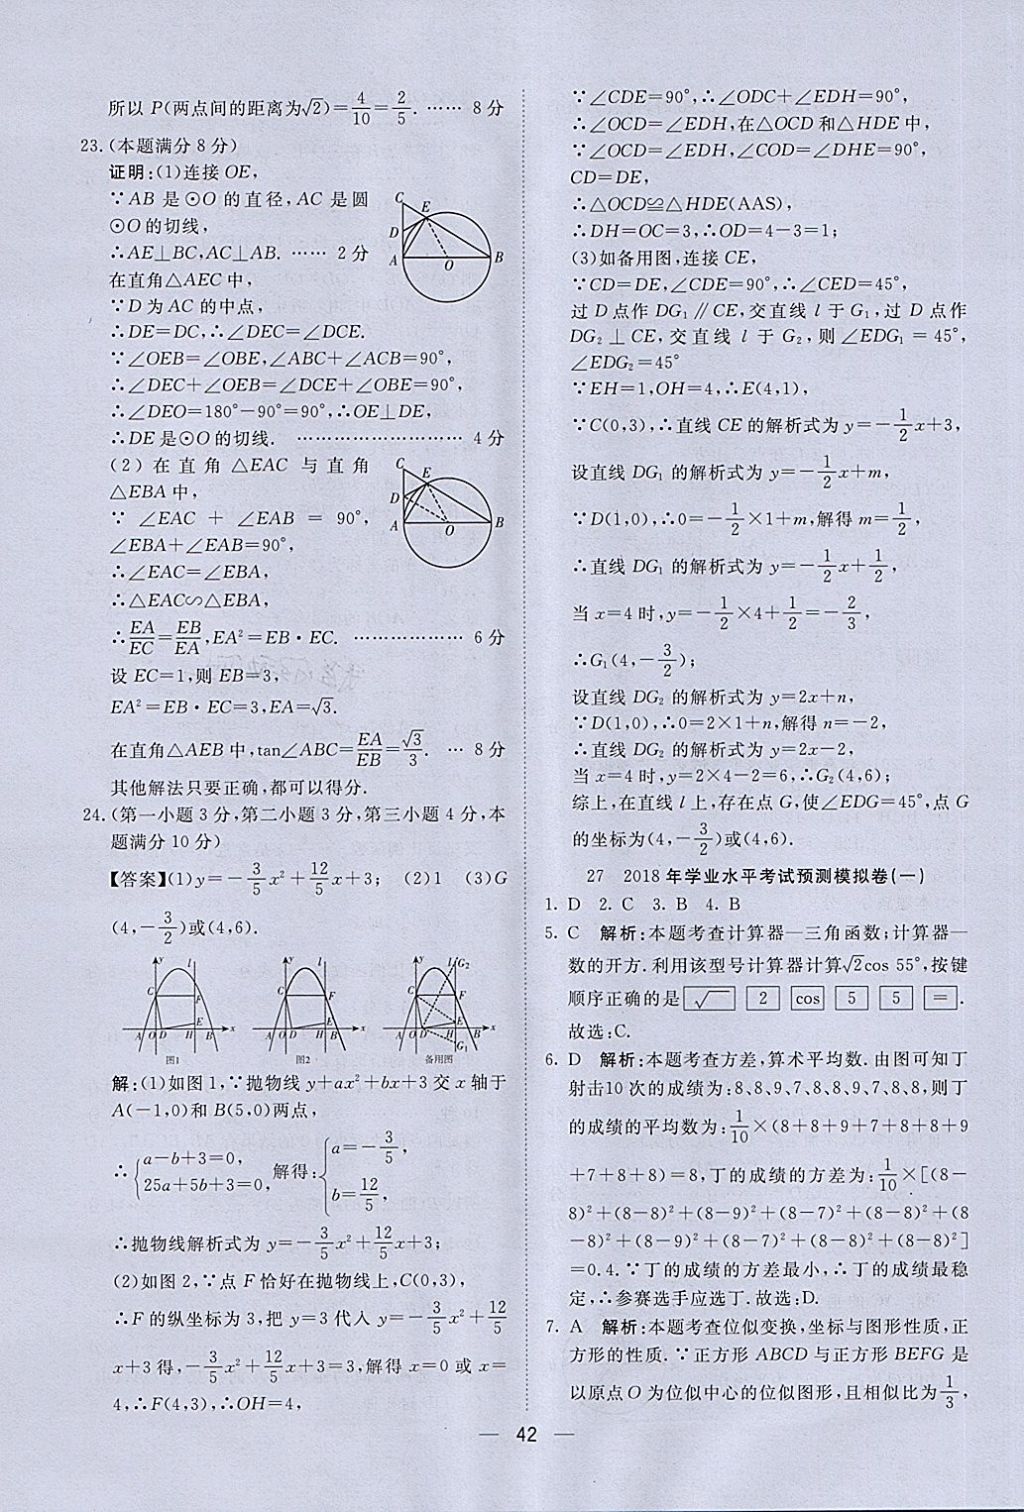 所以 P(两点间的距离为√2)=4/10=2/5. …… 8分
23.(本题满分8分)
证明:(1)连接OE,
∵AB 是⊙O 的直径,AC 是圆
⊙O的切线,
∴AE⊥BC,AC⊥AB. …… 2分
在直角△AEC中,
∵D为AC的中点,
∴DE=DC,∴∠DEC=∠DCE.
∵∠OEB=∠OBE,∠ABC+∠ACB=90°,
∴∠DEC+∠OEB=∠DCE+∠OBE=90°,
∴∠DEO=180°-90°=90°,∴OE⊥DE,
∴DE是⊙O的切线. ……………………… 4分
C E D A O B
(2) 在直角 △EAC 与直角
△EBA中,
∵ ∠EAC + ∠EAB = 90°,
∠EBA+∠EAB=90°,
∴∠EAC=∠EBA,
∴△EAC∽△EBA,
∴EA/EC=EB/EA,EA²=EB·EC. ……………… 6分
设EC=1,则EB=3,
EA²=EB·EC=3,EA=√3.
在直角△AEB中,tan∠ABC=EA/EB=√3/3. … 8分
其他解法只要正确,都可以得分.
C E D A O B
24.(第一小题3分,第二小题3分,第三小题4分,本
题满分10分)
【答案】(1)y=-3/5x²+12/5x+3; (2)1 (3)G
(4,-3/2)或(4,6).
y l C F E A O D H B x
图1
y l C F E A O D H B x
图2
y l G₂ C F E A O D H B x G₁
备用图
解:(1)如图1,∵抛物线y+ax²+bx+3交x轴于
A(-1,0)和B(5,0)两点,
∴{a-b+3=0, 25a+5b+3=0, 解得:{a=-3/5, b=12/5,
∴抛物线解析式为y=-3/5x²+12/5x+3;
(2)如图2,∵点F恰好在抛物线上,C(0,3),
∴F的纵坐标为3,把y=3代入y=-3/5x²+12/5
x+3得,-3/5x²+12/5x+3=3,解得x=0或x=
4,∴F(4,3),∴OH=4,
∵∠CDE=90°,∴∠ODC+∠EDH=90°,
∴∠OCD=∠EDH,在△OCD和△HDE中,
∵∠OCD=∠EDH,∠COD=∠DHE=90°,
CD=DE,
∴△OCD≌△HDE(AAS),
∴DH=OC=3,∴OD=4-3=1;
(3)如备用图,连接CE,
∵CD=DE,∠CDE=90°,∴∠CED=45°,
过D点作DG₁∥CE,交直线l于G₁,过D点作
DG₂⊥CE,交直线l于G₂,则∠EDG₁=45°,
∠EDG₂=45°
∵EH=1,OH=4,∴E(4,1),
∵C(0,3),∴直线CE的解析式为y=-1/2x+3,
设直线DG₁的解析式为y=-1/2x+m,
∵D(1,0),∴0=-1/2×1+m,解得m=1/2,
∴直线DG₁的解析式为y=-1/2x+1/2,
当x=4时,y=-1/2×4+1/2=-2/3,
∴G₁(4,-3/2);
设直线DG₂的解析式为y=2x+n,
∵D(1,0),∴0=2×1+n,解得n=-2,
∴直线DG₂的解析式为y=2x-2,
当x=4时,y=2×4-2=6,∴G₂(4,6);
综上,在直线l上,存在点G,使∠EDG=45°,点G
的坐标为(4,-3/2)或(4,6).
27 2018年学业水平考试预测模拟卷(一)
1. D 2. C 3. B 4. B
5. C 解析:本题考查计算器—三角函数;计算器—
数的开方.利用该型号计算器计算√2cos 55°,按键
顺序正确的是 √ 2 cos 5 5 = .
故选:C.
6. D 解析:本题考查方差,算术平均数.由图可知丁
射击10次的成绩为:8、8、9、7、8、8、9、7、8、8,则丁
的成绩的平均数为:1/10×(8+8+9+7+8+8+9
+7+8+8)=8,丁的成绩的方差为:1/10×[(8-
8)²+(8-8)²+(8-9)²+(8-7)²+(8-8)²+(8
-8)²+(8-9)²+(8-7)²+(8-8)²+(8-8)²]
=0.4.∵丁的成绩的方差最小,∴丁的成绩最稳
定,∴参赛选手应选丁.故选:D.
7. A 解析:本题考查位似变换,坐标与图形性质,正
方形的性质.∵正方形ABCD与正方形BEFG是
以原点O为位似中心的位似图形,且相似比为1/3,
— 42 —